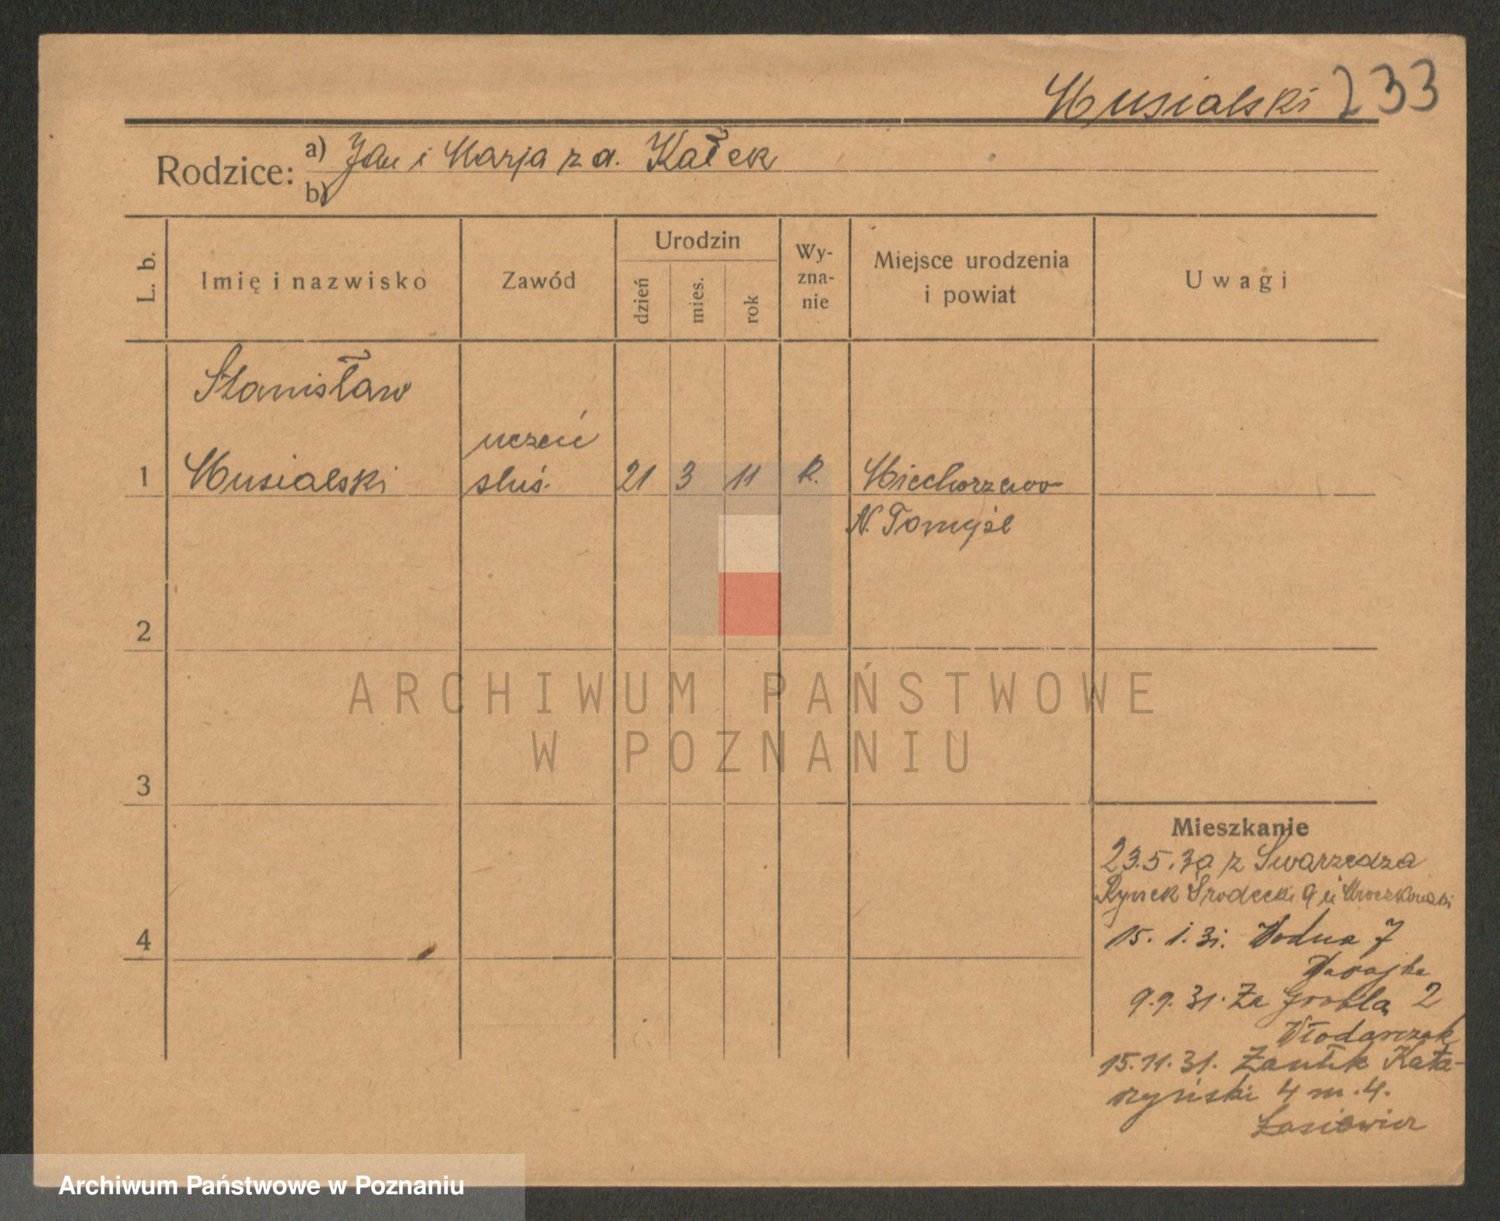 Musialski 233
Rodzice: a) Jan i Marja z d. Kałek
b)
L. b.
Imię i nazwisko
Zawód
Urodzin
dzień
mies.
rok
Wy-
zna-
nie
Miejsce urodzenia
i powiat
Uwagi
Stanisław
uczeń
1 Musialski ślus. 21 3 11 R. Miechorzewo
N. Tomyśl
2
ARCHIWUM PAŃSTWOWE
W POZNANIU
3
Mieszkanie
23.5.30 z Swarzędza
Rynek Srodecki 9 u Mroczkowski
4
15. 1. 31. Wodna 7
9.9.31. Za Groblą 2
Włodarczak
15.11.31. Zaułek Kata-
rzyński 4 m. 4.
Archiwum Państwowe w Poznaniu